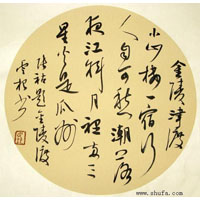 金陵津渡
小山楼一宿行
人自可愁潮落
夜江斜月裡两三
星火是瓜洲
张祜题金陵渡
www.shufa.com